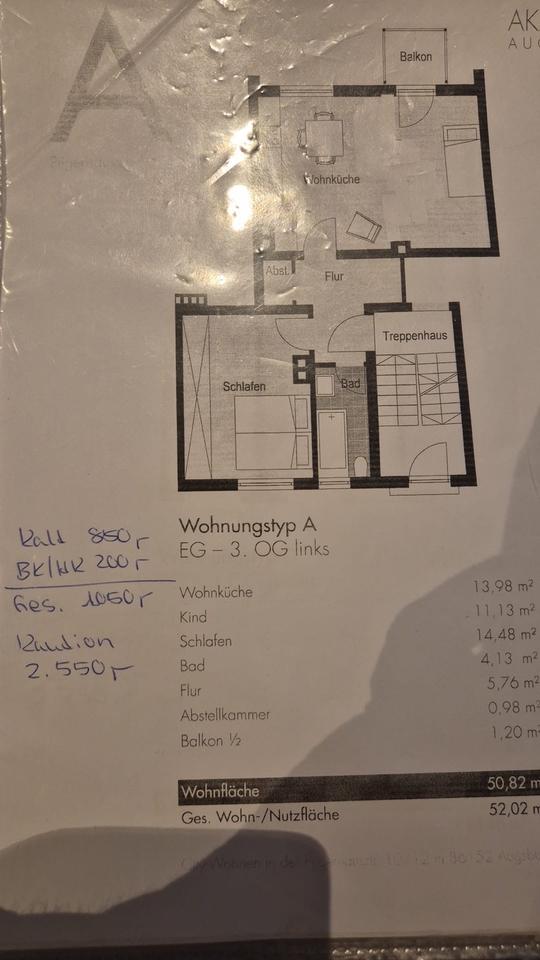 A
AK
AUG
Balkon
Wohnküche
Abst.
Flur
Treppenhaus
Schlafen
Bad
Wohnungstyp A
EG – 3. OG links
Kalt 850,-
BK/HK 200,-
Ges. 1050,-
Kaution
2.550,-
Wohnküche 13,98 m²
Kind 11,13 m²
Schlafen 14,48 m²
Bad 4,13 m²
Flur 5,76 m²
Abstellkammer 0,98 m²
Balkon ½ 1,20 m
Wohnfläche 50,82 m
Ges. Wohn-/Nutzfläche 52,02 m
City-Wohnen in der